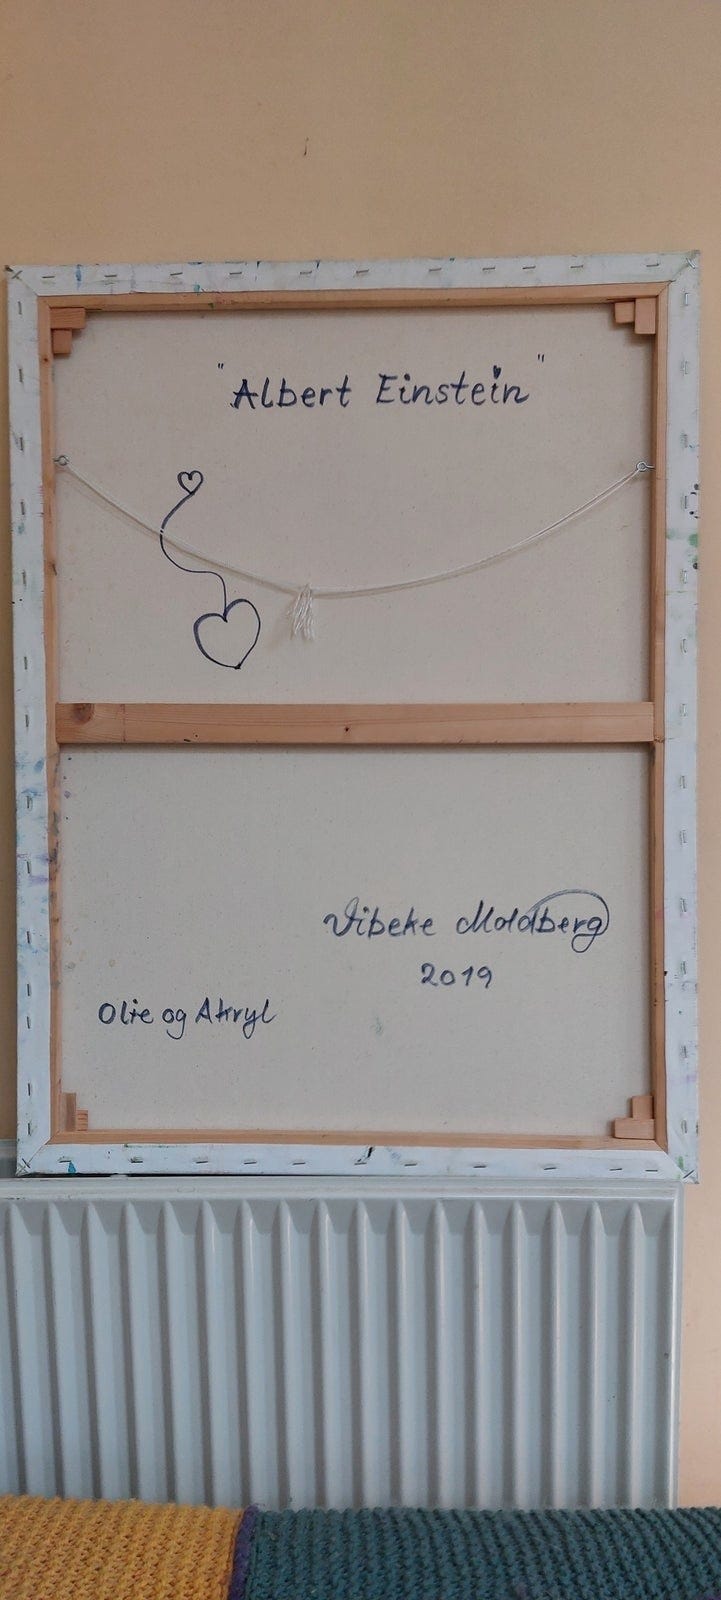 "Albert Einstein"
Vibeke Moldberg
2019
Olie og Akryl